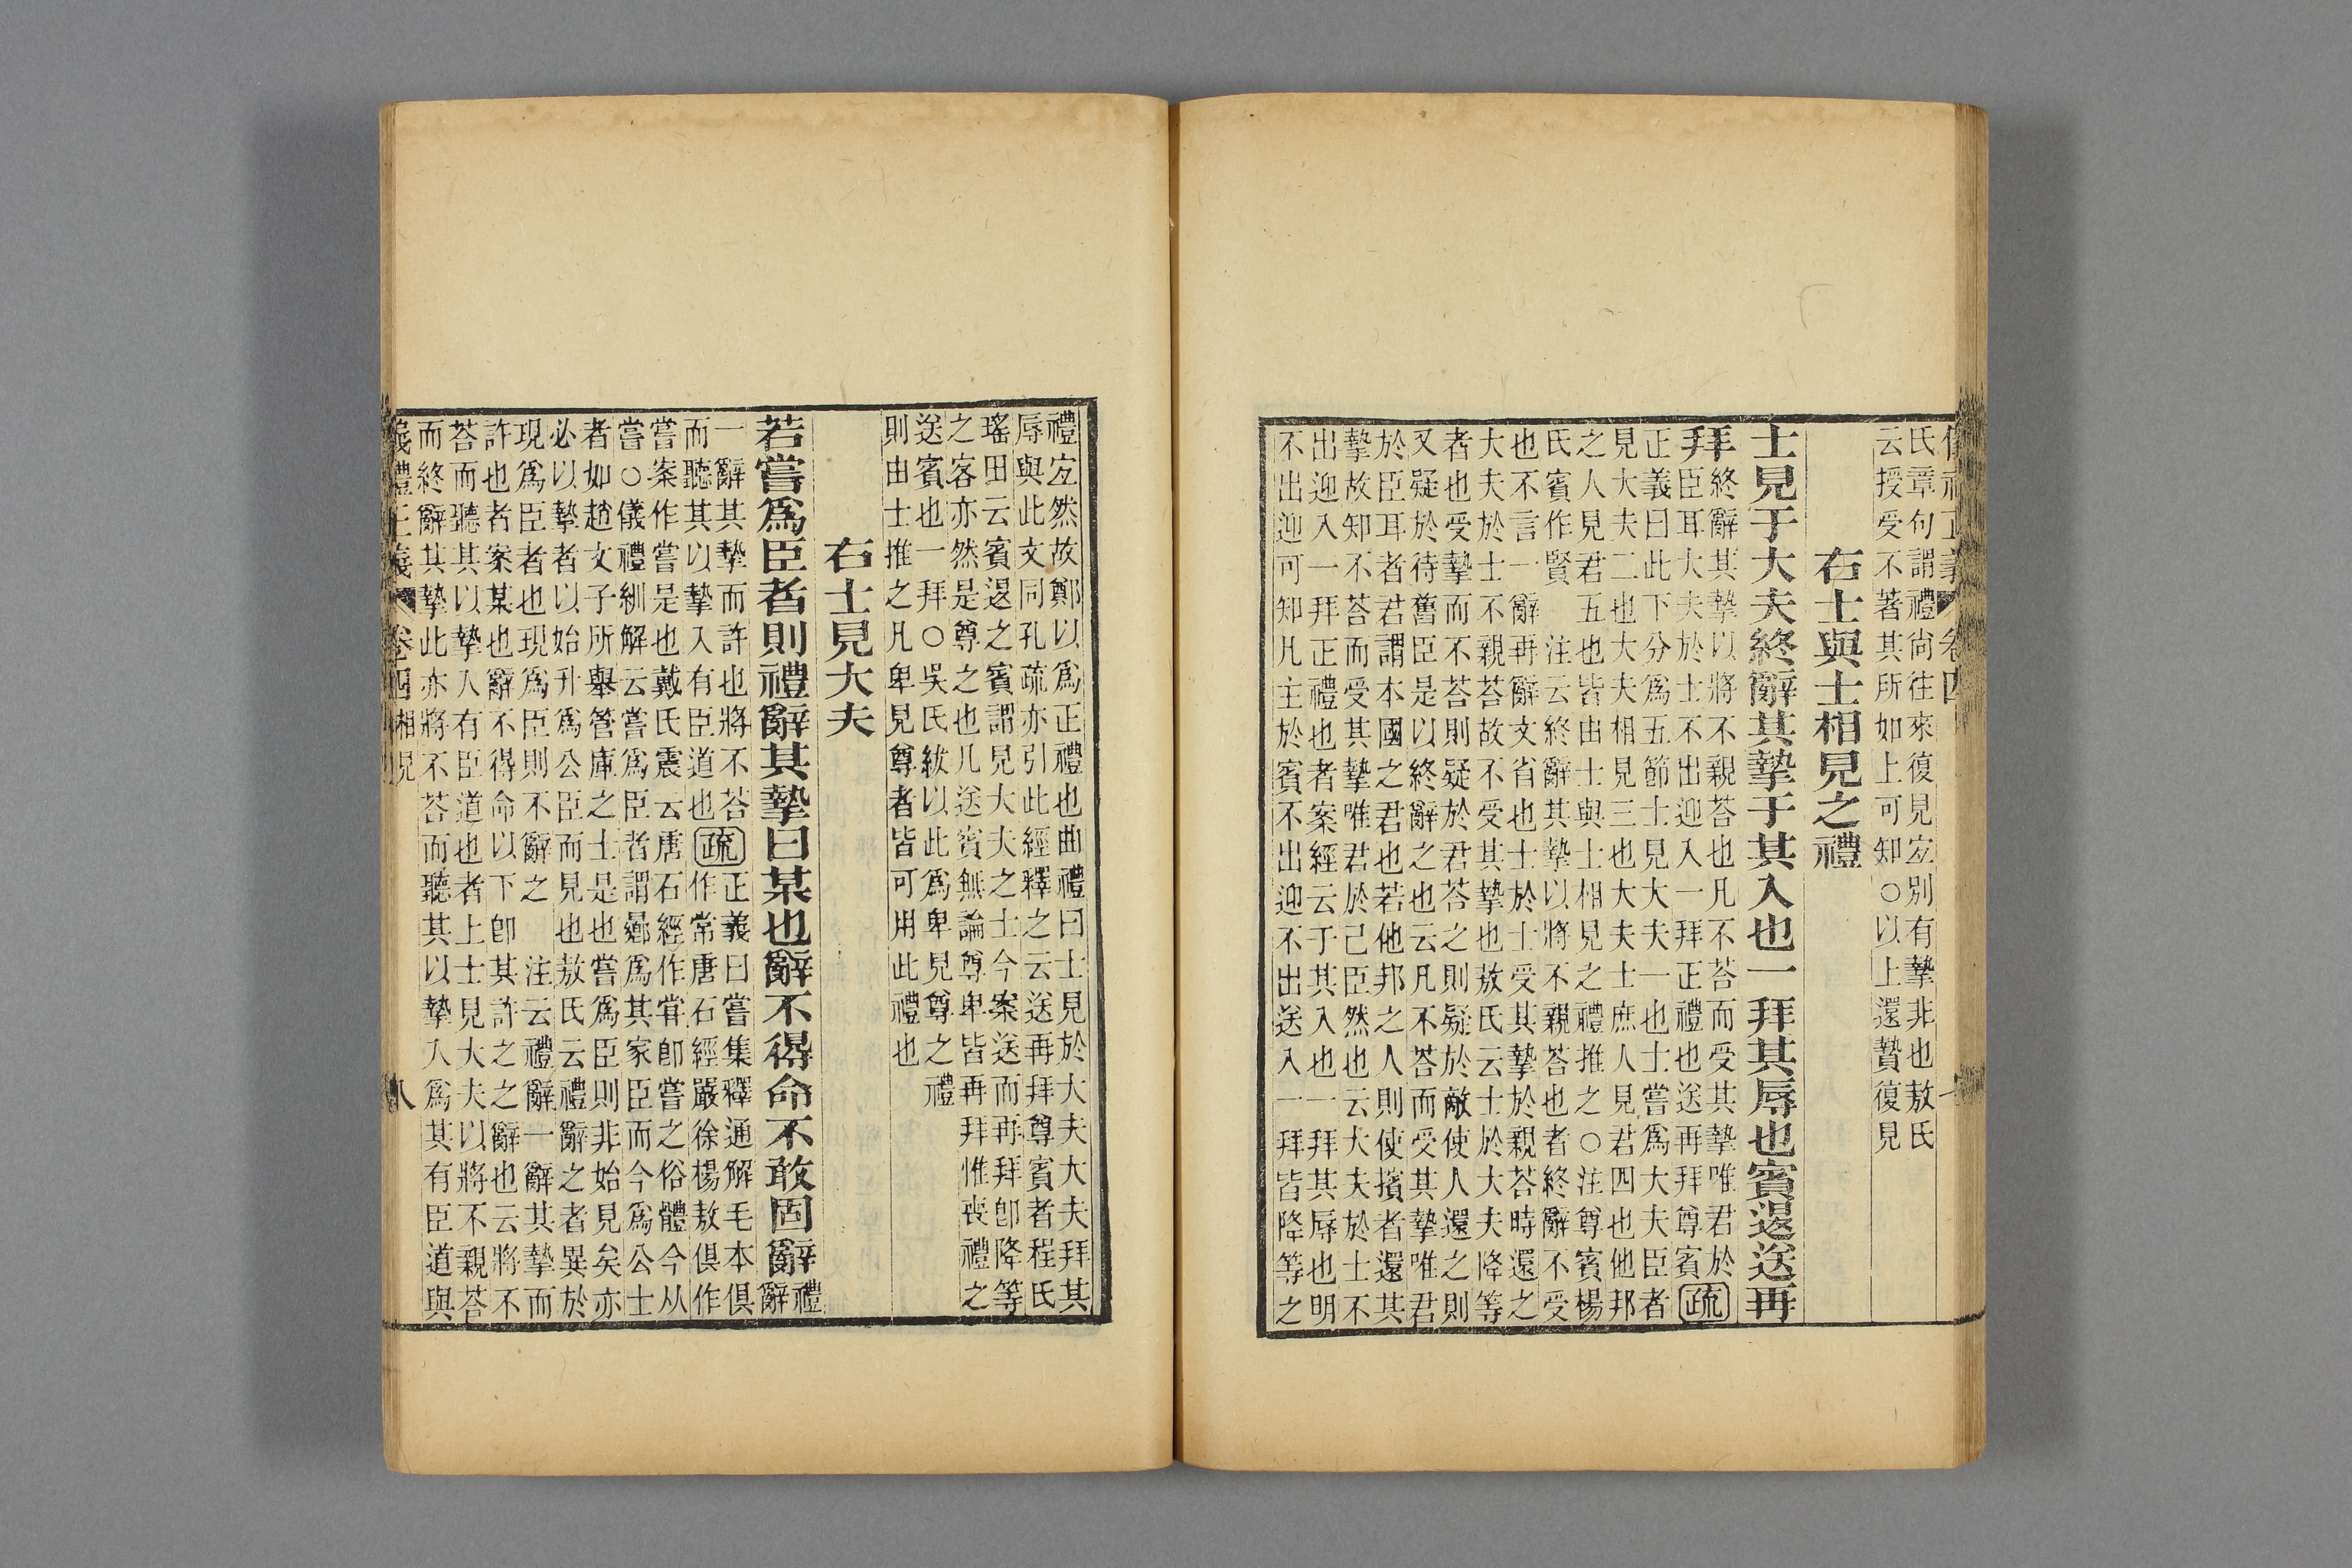 氏章句謂禮尙往來復見宐別有摯非也敖氏
云授受不著其所如上可知○以上還贄復見
右士與士相見之禮
士見于大夫終辭其摯于其入也一拜其辱也賓退送再
拜
終辭其摯以將不親荅也凡不荅而受其摯唯君於
臣耳大夫於士不出迎入一拜正禮也送再拜尊賓
疏
正義曰此下分爲五節士見大夫一也士嘗爲大夫臣者
見大夫二也大夫相見三也大夫士庶人見君四也他邦
之人見君五也皆由士與士相見之禮推之○注尊賓楊
氏賓作賢 注云終辭其摯以將不親荅也者終辭不受
也不言一辭再辭文省也士於士受其摯於親荅時還之
大夫於士不親荅故不受其摯也敖氏云士於大夫降等
者也受摯而不荅則疑於君荅之則疑於敵使人還之則
又疑於待舊臣是以終辭之也云凡不荅而受其摯唯君
於臣耳者君謂本國之君也若他邦之人則使擯者還其
摯故知不荅而受其摯唯君於己臣然也云大夫於士不
出迎入一拜正禮也者案經云于其入也一拜其辱也明
不出迎可知凡主於賓不出迎不出送入一拜皆降等之
禮宐然故鄭以爲正禮也曲禮曰士見於大夫大夫拜其
辱與此文同孔疏亦引此經釋之云送再拜尊賓者程氏
瑤田云賓退之賓謂見大夫之士今案送而再拜卽降等
之客亦然是尊之也凡送賓無論尊卑皆再拜惟喪禮之
送賓也一拜○吳氏紱以此爲卑見尊之禮
則由士推之凡卑見尊者皆可用此禮也
右士見大夫
若嘗爲臣者則禮辭其摯曰某也辭不得命不敢固辭
禮
辭
一辭其摯而許也將不荅
而聽其以摯入有臣道也
疏
正義曰嘗集釋通解毛本俱
作常唐石經嚴徐楊敖俱作
嘗案作嘗是也戴氏震云唐石經作甞卽嘗之俗體今从
嘗○儀禮紃解云嘗爲臣者謂曏爲其家臣而今爲公士
者如趙文子所舉管庫之士是也嘗爲臣則非始見矣亦
必以摯者以始升爲公臣而見也敖氏云禮辭之者異於
現爲臣者也現爲臣則不辭之 注云禮辭一辭其摯而
許也者案某也辭不得命以下卽其許之之辭也云將不
荅而聽其以摯入有臣道也者上士見大夫以將不親荅
而終辭其摯此亦將不荅而聽其以摯入爲其有臣道與
義禮正義 卷四 相見 八